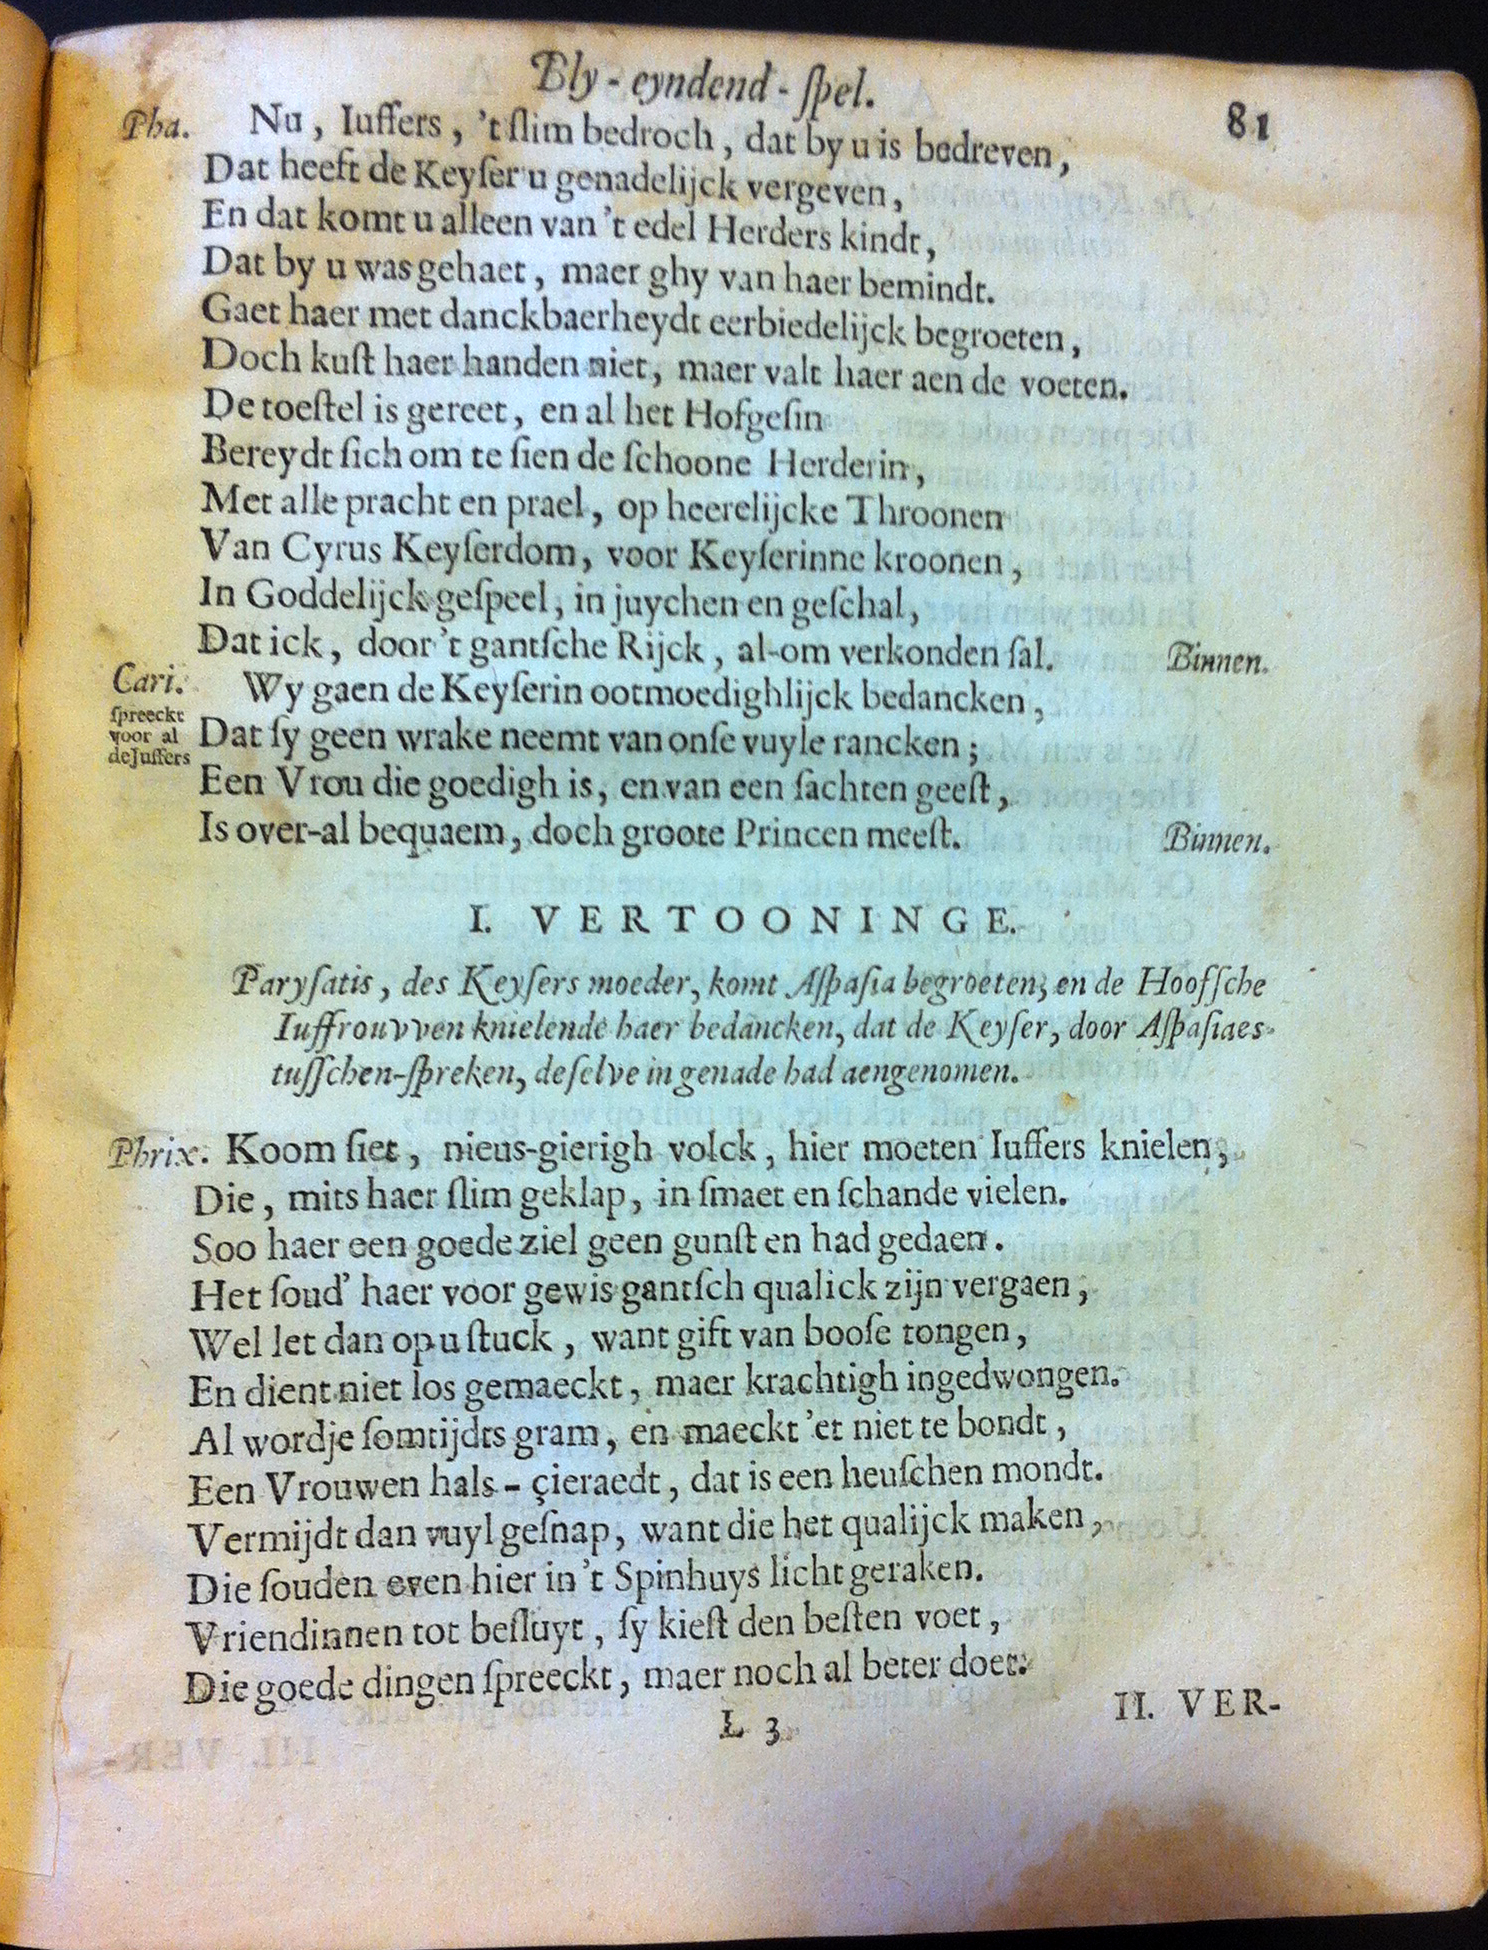 Bly-eyndend-ſpel.
81
Pha. Nu, Iuffers, 't ſlim bedroch, dat by u is bedreven,
Dat heeft de Keyſer u genadelijck vergeven,
En dat komt u alleen van 't edel Herders kindt,
Dat by u was gehaet, maer ghy van haer bemindt.
Gaet haer met danckbaerheydt eerbiedelijck begroeten,
Doch kuſt haer handen niet, maer valt haer aen de voeten.
De toeſtel is gereet, en al het Hofgeſin
Bereydt ſich om te ſien de ſchoone Herderin,
Met alle pracht en prael, op heerelijcke Throonen
Van Cyrus Keyſerdom, voor Keyſerinne kroonen,
In Goddelijck geſpeel, in juychen en geſchal,
Dat ick, door 't gantſche Rijck, al-om verkonden ſal. Binnen.
Cari. Wy gaen de Keyſerin ootmoedighlijck bedancken,
ſpreeckt
voor al
de Juffers
Dat ſy geen wrake neemt van onſe vuyle rancken;
Een Vrou die goedigh is, en van een ſachten geeſt,
Is over-al bequaem, doch groote Princen meeſt. Binnen.
I. VERTOONINGE.
Paryſatis, des Keyſers moeder, komt Aſpaſia begroeten, en de Hoofſche
Iuffrouvven knielende haer bedancken, dat de Keyſer, door Aſpaſiaes
tuſſchen-ſpreken, deſelve in genade had aengenomen.
Phrix. Koom ſiet, nieus-gierigh volck, hier moeten Iuffers knielen,
Die, mits haer ſlim geklap, in ſmaet en ſchande vielen.
Soo haer een goede ziel geen gunſt en had gedaen.
Het ſoud' haer voor gewis gantſch qualick zijn vergaen,
Wel let dan op u ſtuck, want gift van booſe tongen,
En dient niet los gemaeckt, maer krachtigh ingedwongen.
Al wordje ſomtijdts gram, en maeckt 'et niet te bondt,
Een Vrouwen hals-çieraedt, dat is een heuſchen mondt.
Vermijdt dan vuyl geſnap, want die het qualijck maken,
Die ſouden even hier in 't Spinhuys licht geraken.
Vriendinnen tot beſluyt, ſy kieſt den beſten voet,
Die goede dingen ſpreeckt, maer noch al beter doet.
L 3
II. VER-